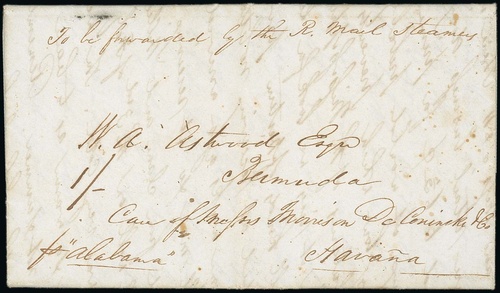 To be forwarded by the R. Mail Steamers
W. A. Astwood Esqr
Bermuda
1/-
Care of Messrs Morrison De Coninck & Co
pr "Alabama"
Havaña